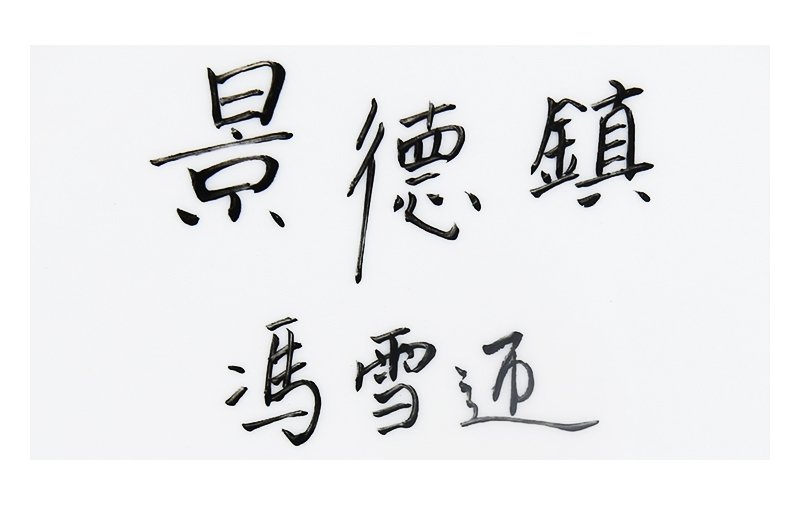 景德鎮
馮雪迊